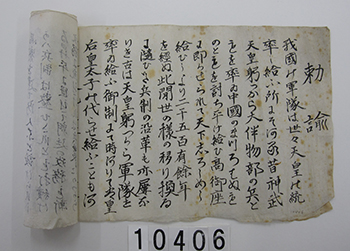 勅諭
我國の軍隊は世々天皇の統
率し給ふ所にそある昔神武
天皇躬つから大伴物部の兵と
もを率ゐ中國のまつろはぬも
のともを討ち平け給ひ高御座
に即かせられて天下しろしめし
給ひしより二千五百有餘年
を經ぬ此間世の樣の移り換る
に隨ひて兵制の沿革も亦屢
なりき古は天皇躬つから軍隊を
率ゐ給ふ御制にて時ありては皇
后皇太子の代らせ給ふことも
10406